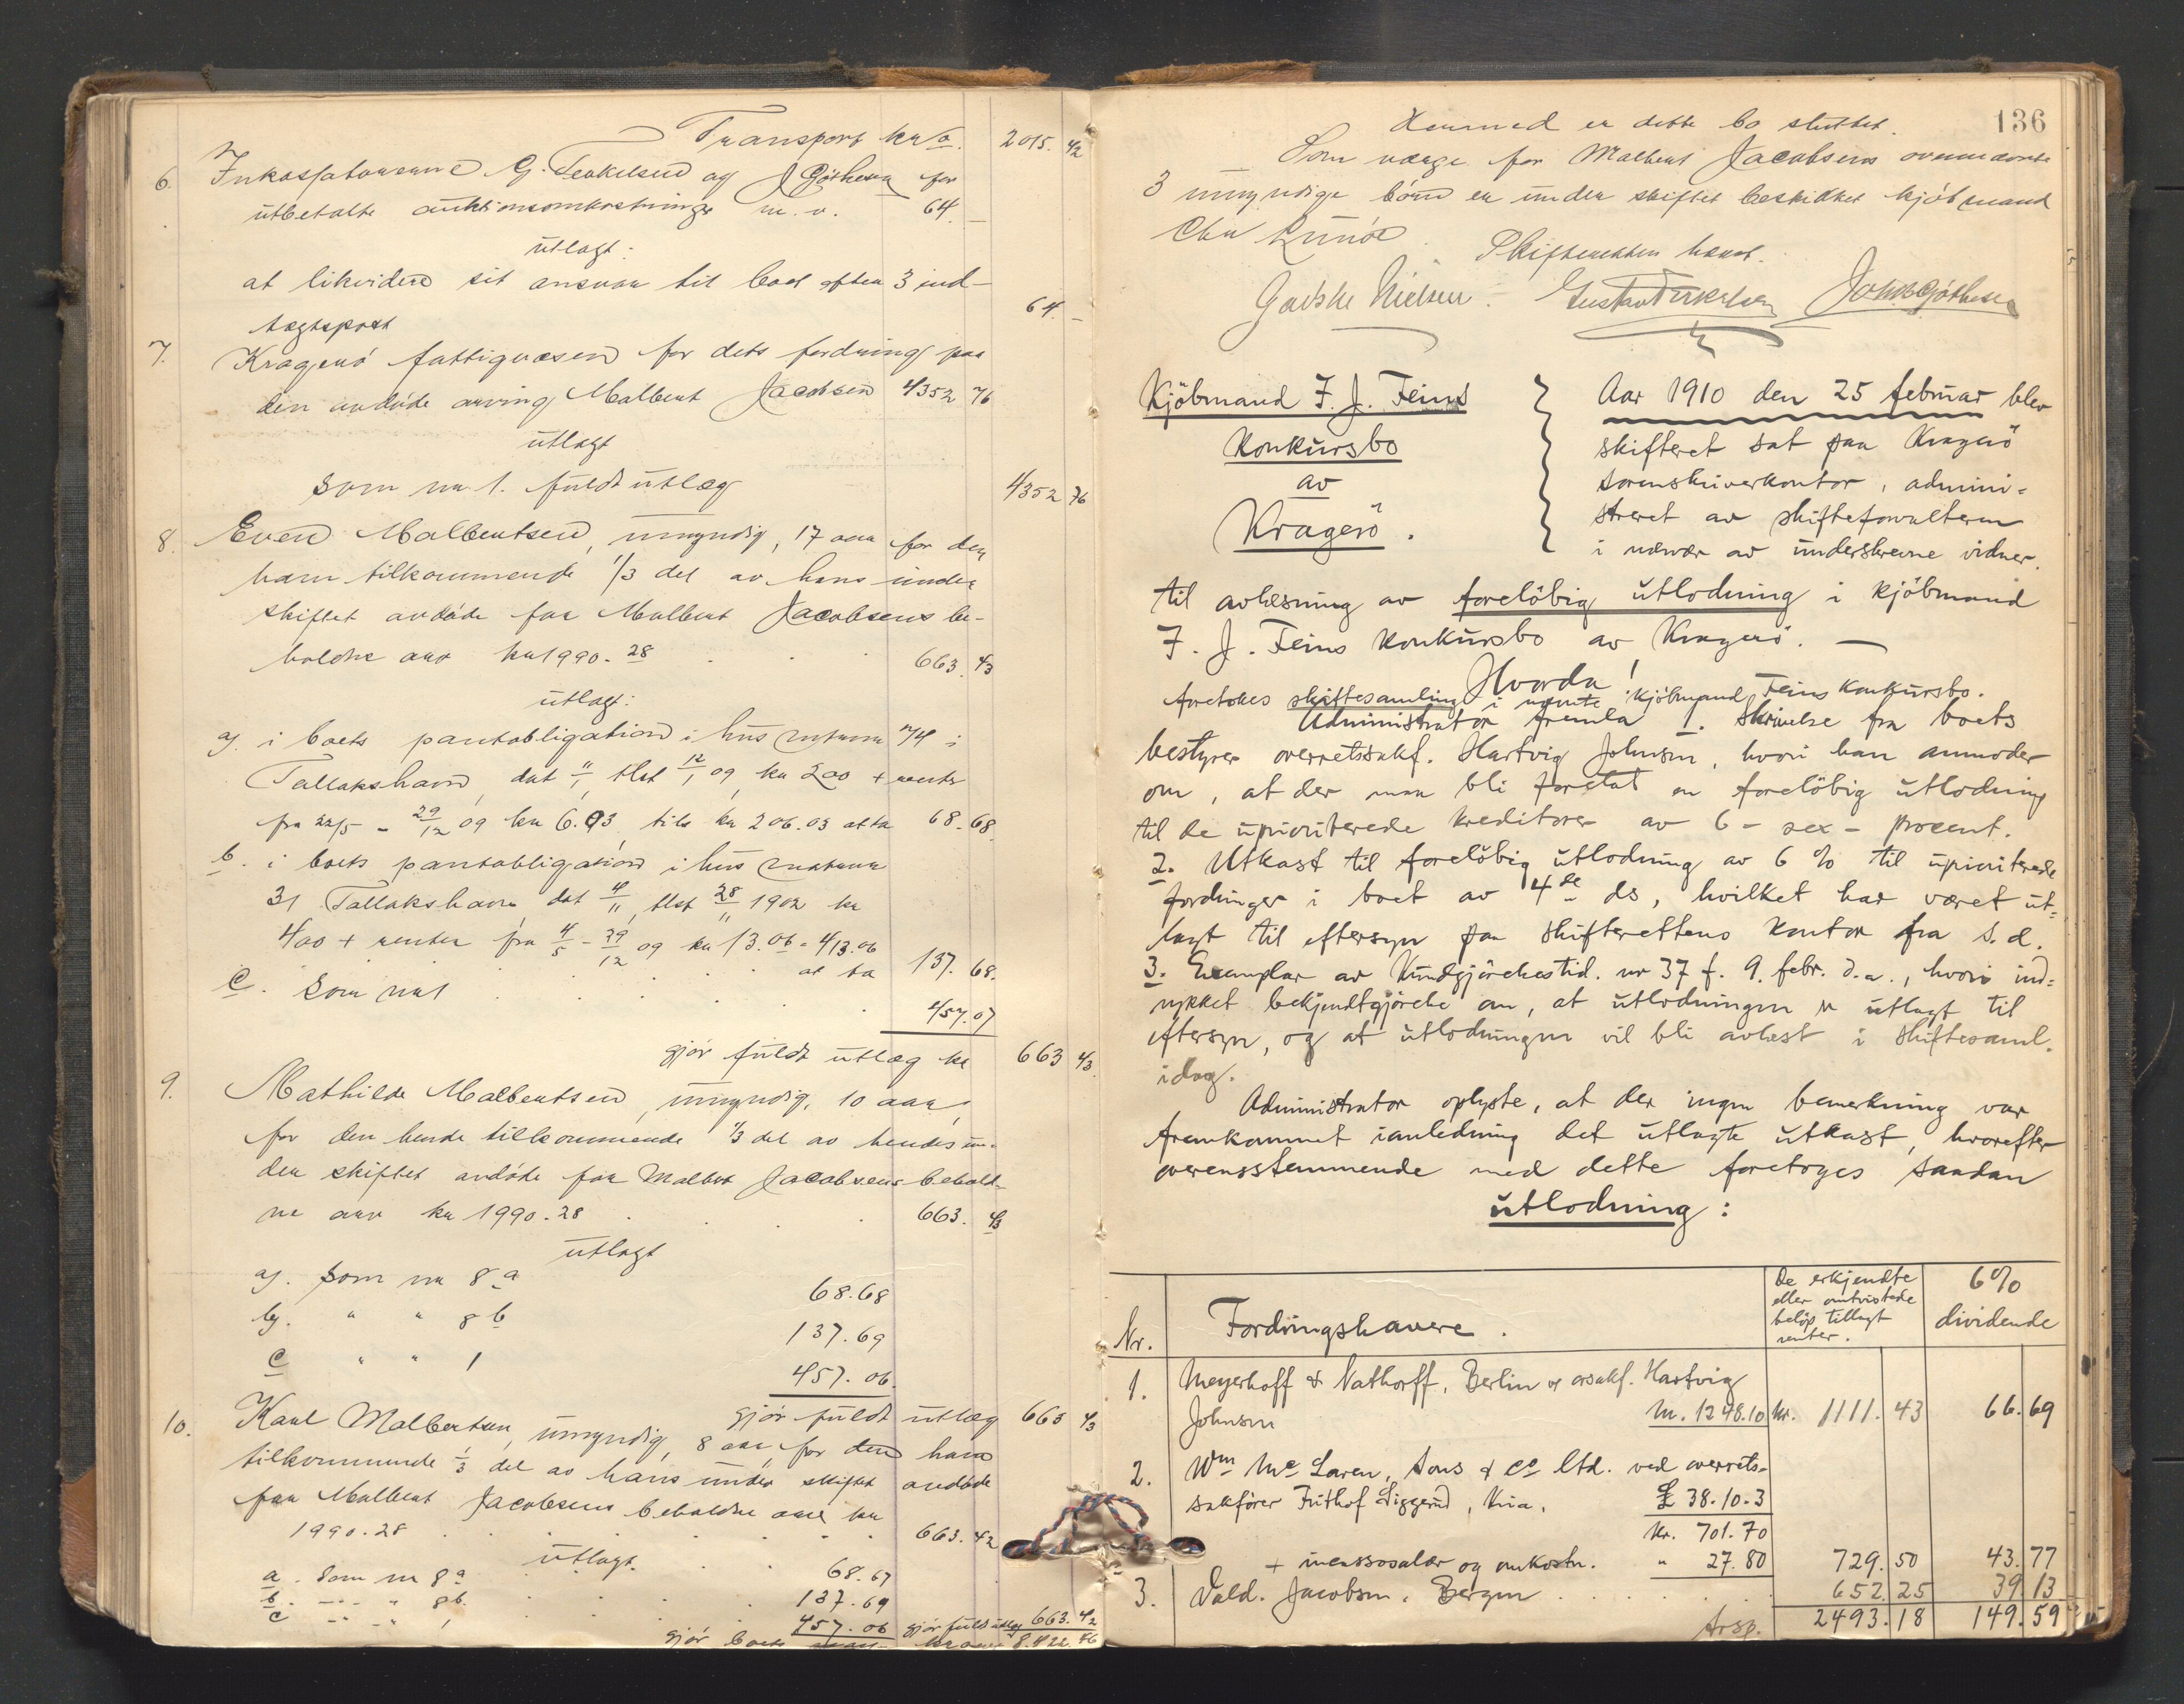 Transport kr 2015. 42
6. Inkassatorerne G. Terkelsen og J Gjöthesen for
utbetalte auktionsomkostninger m. v. 64. –
utlagt:
at likvidere sit ansvar til boet efter 3 ind-
tægtspost 64. –
7. Kragerö fattigvæsen for dets fordring paa
den avdöde arving Malbert Jacobsen 4352 76
utlagt
som nr 1. fuldt utlæg 4352 76
8. Even Malbertsen, umyndig, 17 aar for den
ham tilkommende 1/3 del av hans under
skiftet avdöde far Malbert Jacobsens be-
holdne arv kr 1990. 28 . . . 663. 43
utlagt:
a) i boets pantobligation i hus matrnr 74 i
Tallakshavn, dat 11/1, tlst 12/1 09, kr 200 + renter
fra 22/5 - 29/12 09 kr 6.03 tils kr 206.03 at ta 68. 68
b. i boets pantobligation i hus matrnr
31 Tallakshavn dat 4/11, tlst 28/11 1902 kr
400 + renter fra 4/5 - 29/12 09 kr 13.06 = 413.06
at ta 137. 68.
c. Som nr 1 457. 07
gjör fuldt utlæg kr 663 43.
9. Mathilde Malbertsen, umyndig, 10 aar,
for den hende tilkommende 1/3 del av hendes un-
der skiftet avdöde far Malbert Jacobsens behold-
ne arv kr 1990. 28 . . . 663. 43
utlagt
a). Som nr 8 a 68.68
b). " " 8 b 137. 69
c " " 1 457. 06.
gjör fuldt utlæg 663 43
10. Karl Malbertsen, umyndig, 8 aar, for den ham
tilkommende 1/3 del av hans under skiftet avdöde
far Malbert Jacobsens beholdne arv kr
1990. 28 . . . 663. 42
utlagt.
a. Som nr 8 a 68. 67
b. -"- " 8 b. 137. 69
c -"- " 1 457. 06 gjör fuldt utlæg 663. 42
gjör boets 8.422 46
136
Hermed er dette bo sluttet.
Som værge for Malbert Jacobsens ovennævnte
3 umyndige börn er under skiftet beskikket kjöbmand
Chr Lunöe. Skifteretten hævet.
Gadske Nielsen. Gustav Terkelsen Johs Gjöthesen
Kjöbmand F. J. Feins
Konkursbo
av
Kragerö.
Aar 1910 den 25 februar blev
skifteret sat paa Kragerö
sorenskriverkontor, admini=
streret av skifteforvalteren
i nærvær av underskrevne vidner.
til avlæsning av foreløbig utlodning i kjöbmand
F. J. Feins konkursbo av Kragerö. —
Hvorda!
foretokes skiftesamling i nævnte kjöbmand Feins konkursbo.
Administrator fremla 1. Skrivelse fra boets
bestyrer overretssakf. Hartvig Johnsen, hvori han anmoder
om, at der maa bli foretat en foreløbig utlodning
til de uprioriterede kreditorer av 6 – sex – procent.
2. Utkast til foreløbig utlodning av 6 % til uprioriterede
fordringer i boet av 4de ds, hvilket har været ut=
lagt til eftersyn paa skifterettens kontor fra s. d.
3. Exemplar av Kundgjörelsestid. nr 37 f. 9. febr. d. a., hvori ind=
rykket bekjendtgjörelse om, at utlodningen er utlagt til
eftersyn, og at utlodningen vil bli avlæst i skiftesaml.
idag.
Administrator oplyste, at der ingen bemerkning var
fremkommet i anledning det utlagte utkast, hvorefter
overensstemmende med dette foretoges saadan
utlodning:
Nr. Fordringshavere. De erkjendte eller omtvistede beløp tillagt renter. 6% dividende
1. Meyerhoff & Nathorff, Berlin v orsakf. Hartvig
Johnsen M. 1248.10 Kr. 1111. 43 66. 69
2. Wm Mc Laren, Sons & Co Ltd. ved overrets-
sakförer Frithof Liggerud, Kria. £ 38. 10. 3
Kr. 701. 70
+ incassosalær og omkostn. " 27. 80 729. 50 43. 77
3. Vald. Jacobsen, Bergen . . . 652. 25 39. 13
Trsp. 2493. 18 149. 59